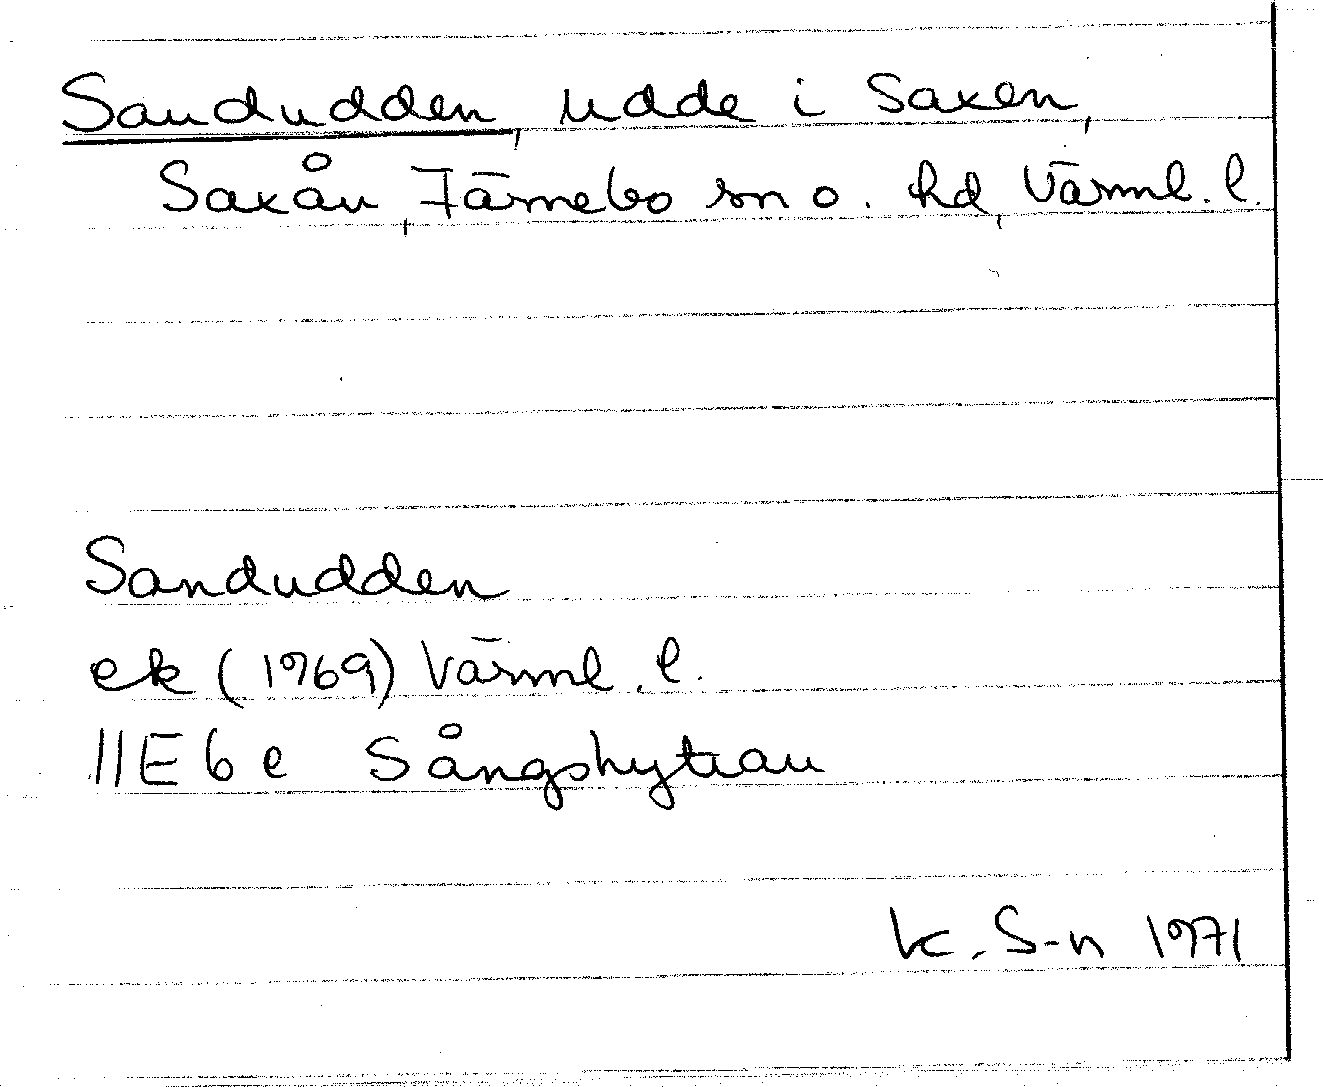 Sandudden, udde i Saxen,
Saxån, Färnebo sn o. hd, Värml. l.
Sandudden
ek (1969) Värml. l.
11E 6e Sångshyttan
K. S-n 1971